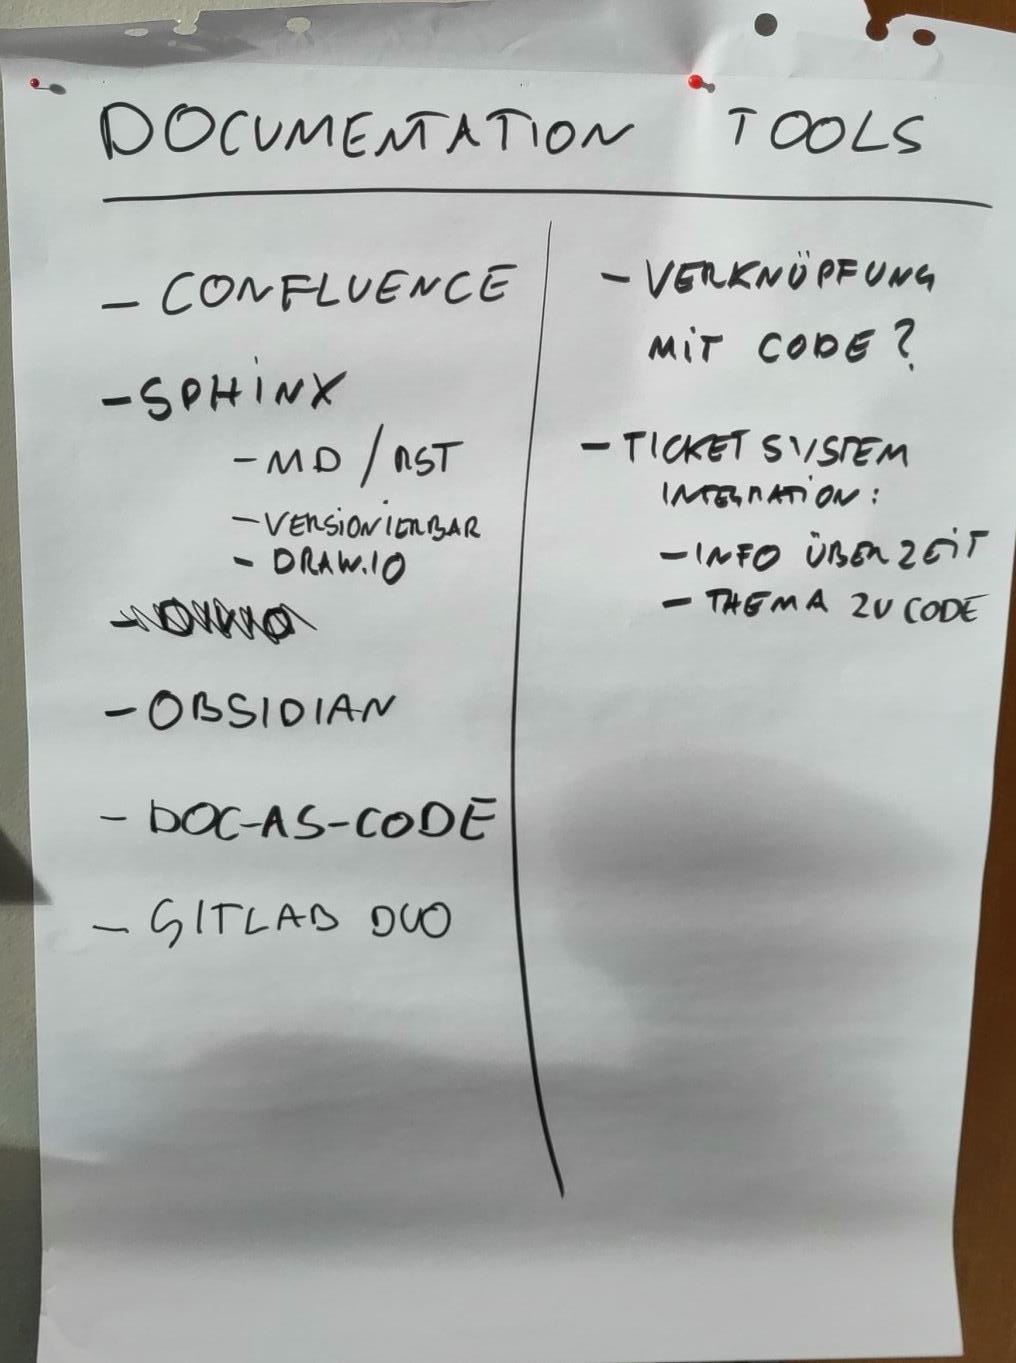 DOCUMENTATION TOOLS
- CONFLUENCE
- SPHINX
- MD / RST
- VERSIONIERBAR
- DRAW.IO
- OBSIDIAN
- DOC-AS-CODE
- GITLAB DUO
- VERKNÜPFUNG
MIT CODE?
- TICKETSYSTEM
INTEGRATION:
- INFO ÜBER ZEIT
- THEMA ZU CODE